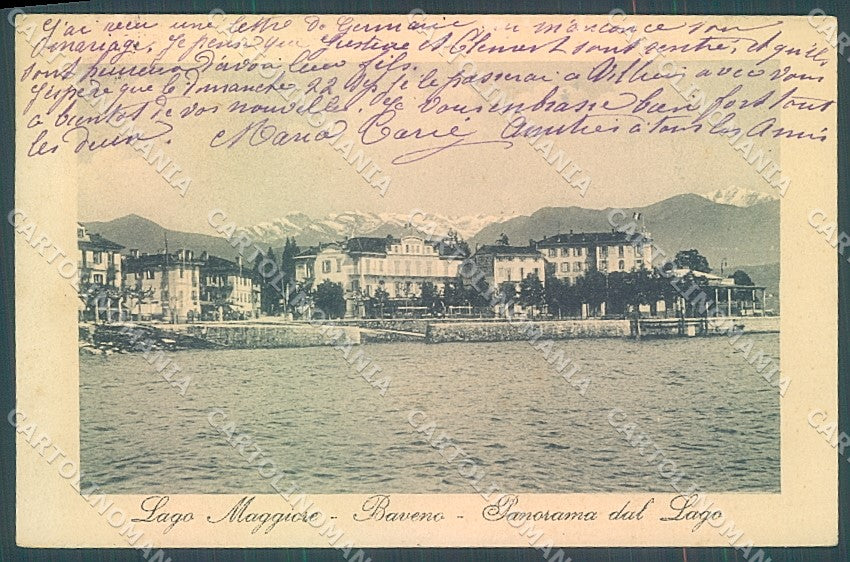 J'ai reçu une lettre de Germaine m'annonce son
mariage. Je pense que Justine et Clement sont rentré, et qu'ils
sont heureux d'avoir leur fils.
J'espère que le Dimanche 22 Sep je le passerai a Villers avec vous
a bientot de vos nouvelles. Je vous embrasse bien fort tout
les deux. Maria Carié Amitiés à tous les Amis
Lago Maggiore - Baveno - Panorama dal Lago
CARTOLINOMANIA